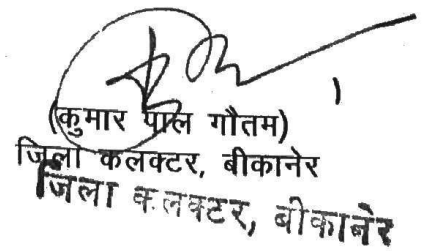 (कुमार पाल गौतम)
जिला कलक्टर, बीकानेर
जिला कलक्टर, बीकानेर